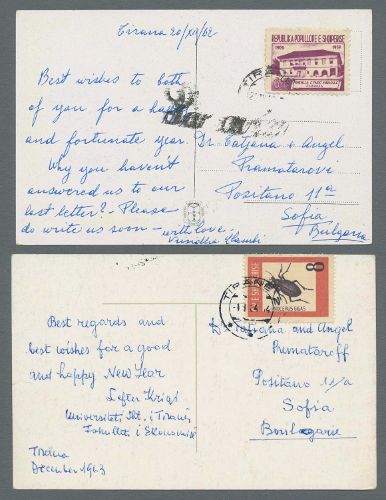 Tirana 20/XII/62
Best wishes to both
of you for a happy
and fortunate year.
Why you haven't
answered us to our
last letter? - Please
do write us soon - with love
REPUBLIKA POPULLORE E SHQIPERISE
1908 1958
TIRANE
Dr. Tatjana & Angel
Pramatarovi
Positano 11a
Sofia
Bulgaria
Best regards and
best wishes for a good
and happy New Year
Lefter
Universiteti Sht. i Tiranës
Fakulteti i Ekonomisë
Tirana
December 1963
8
TIRANE
Dr. and Angel
Prematároff
Positano 11/a
Sofia
Boulgarie